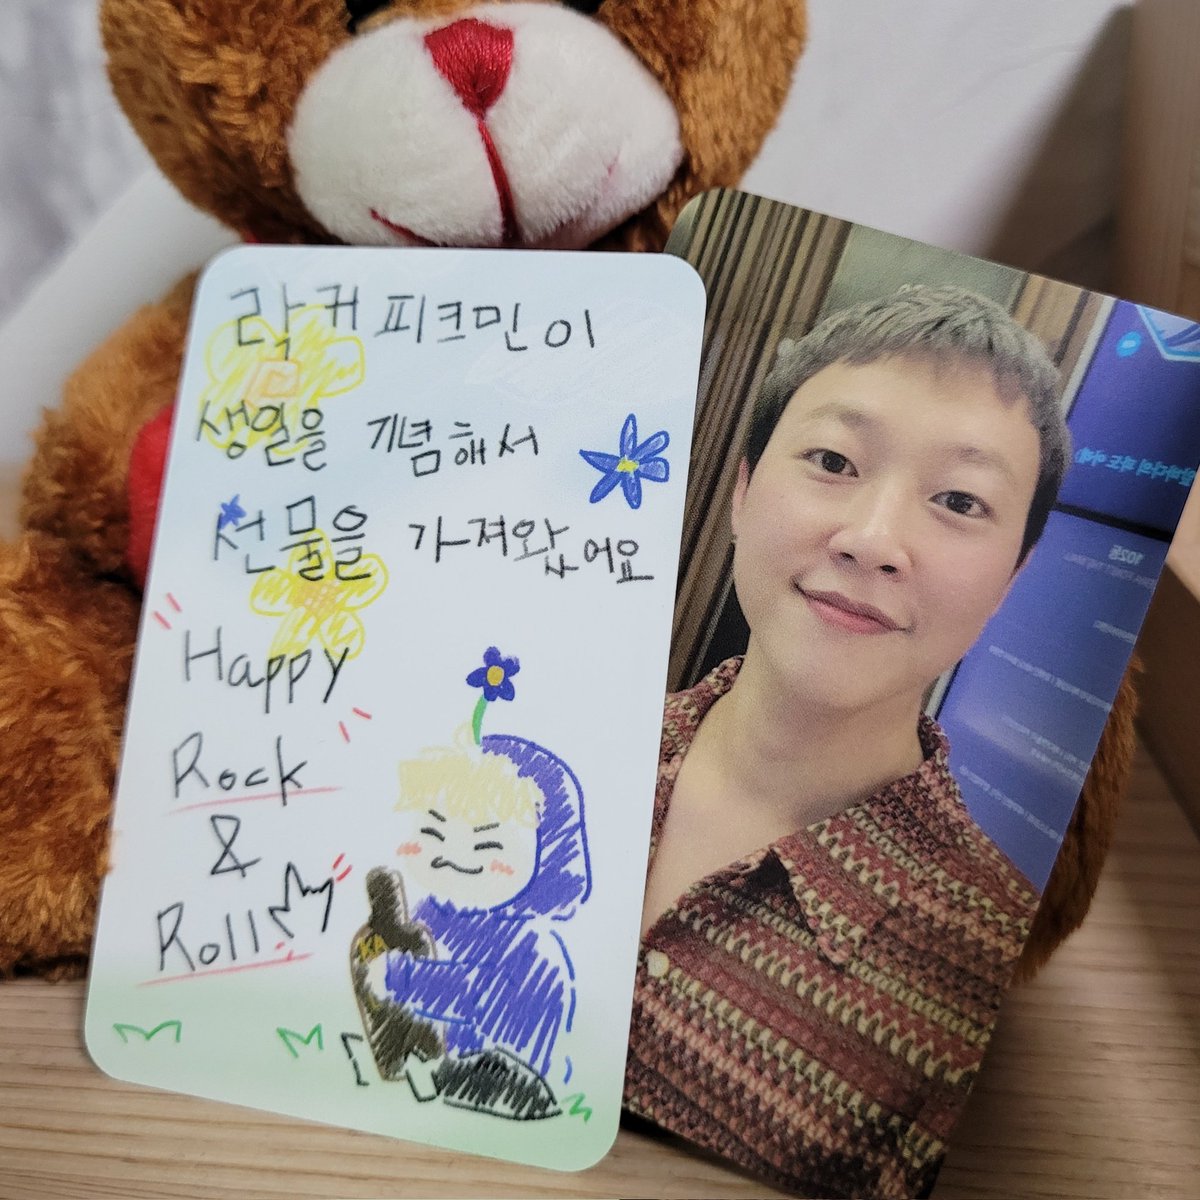 락커 피크민이
생일을 기념해서
선물을 가져왔어요
Happy
Rock
&
Roll
KA